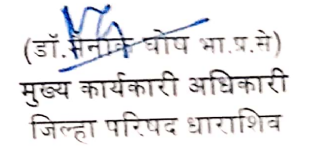 (डॉ.मैनाक घोष भा.प्र.से)
मुख्य कार्यकारी अधिकारी
जिल्हा परिषद धाराशिव